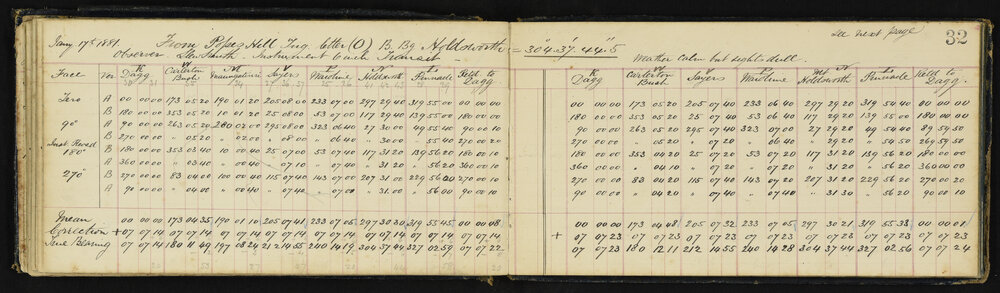 see next page
32
Jany 17th 1881 From Popes Hill Trig. letter (O) B. Bg Holdsworth = 304° 37' 44" 5
Observer Instrument Cooke Transit
Weather Calm but light dull
K V N S T M L K
Face Ver Dagg Carterton Bush Sayers Wardline Holdsworth Pinnacle Retd to Dagg Dagg Carterton Bush Sayers Wardline Holdsworth Pinnacle Retd to Dagg
Zero A 00 00 00 173 05 20 190 01 20 205 08 00 233 07 00 297 29 40 319 55 00 00 00 00 00 00 00 173 05 20 205 07 40 233 06 40 297 29 20 319 54 40 00 00 00
B 180 00 00 353 05 20 10 01 20 25 08 00 53 07 00 117 29 40 139 55 00 180 00 00 180 00 00 353 05 20 25 07 40 53 06 40 117 29 20 139 55 00 180 00 00
90° A 90 00 00 263 05 20 280 02 00 295 08 00 323 06 40 27 30 00 49 55 40 90 00 10 90 00 00 263 05 20 295 07 40 323 07 00 27 29 20 49 54 40 89 59 50
Inst Revsd B 270 00 00 " 05 20 " 02 00 " 08 00 " 06 40 " 30 00 " 55 40 270 00 20 270 00 00 " 05 20 " 07 20 " 06 40 " 29 20 " 54 50 269 59 50
180° B 180 00 00 353 03 40 10 00 40 25 07 00 53 07 40 117 31 20 139 56 20 180 00 10 180 00 00 353 04 20 25 07 20 53 07 20 117 31 20 139 56 20 180 00 00
A 360 00 00 " 03 40 " 00 40 " 07 10 " 07 40 " 31 20 " 56 20 360 00 10 360 00 00 " 04 20 " 07 20 " 07 20 " 31 20 " 56 20 360 00 00
270° B 270 00 00 83 04 00 100 00 40 115 07 40 143 07 00 207 31 00 229 56 00 270 00 10 270 00 00 83 04 20 115 07 40 143 07 20 207 31 20 229 56 20 270 00 20
A 90 00 00 " 04 00 " 00 40 " 07 40 " 07 00 " 31 00 " 56 00 90 00 10 90 00 00 " 04 20 " 07 40 " 07 40 " 31 30 " 56 20 90 00 10
Mean 00 00 00 173 04 35 190 01 10 205 07 41 233 07 05 297 30 30 319 55 45 00 00 08 00 00 00 173 04 48 205 07 32 233 07 05 297 30 21 319 55 33 00 00 01
Correction + 07 07 14 07 07 14 07 07 14 07 07 14 07 07 14 07 07 14 07 07 14 07 07 14 + 07 07 23 07 07 23 07 07 23 07 07 23 07 07 23 07 07 23 07 07 23
True Bearing 07 07 14 180 11 49 197 08 24 212 14 55 240 14 19 304 37 44 327 02 59 07 07 22 07 07 23 180 12 11 212 14 55 240 14 28 304 37 44 327 02 56 07 07 24